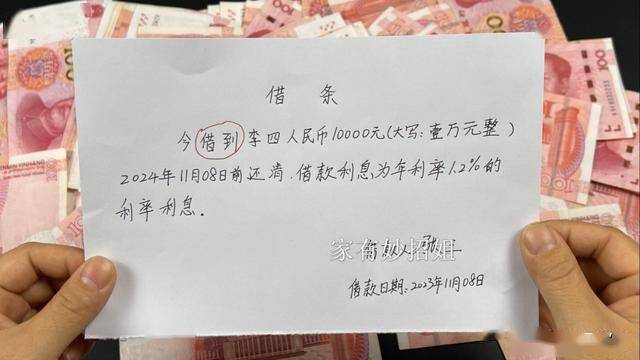 借条
今借到李四人民币10000元(大写:壹万元整)
2024年11月08日前还清.借款利息为年利率1.2%的
利率利息.
家有妙招姐
借款日期:2023年11月08日